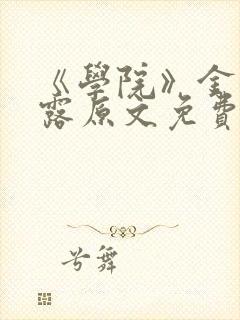 《學院》金
露原文免費
兮舞